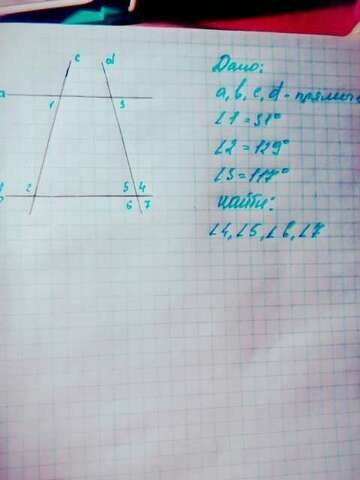 c d
Дано:
a
a, b, c, d - прямые
1 3
∠1 = 51°
∠2 = 129°
∠3 = 117°
найти:
2 5 4
6 7
∠4, ∠5, ∠6, ∠7